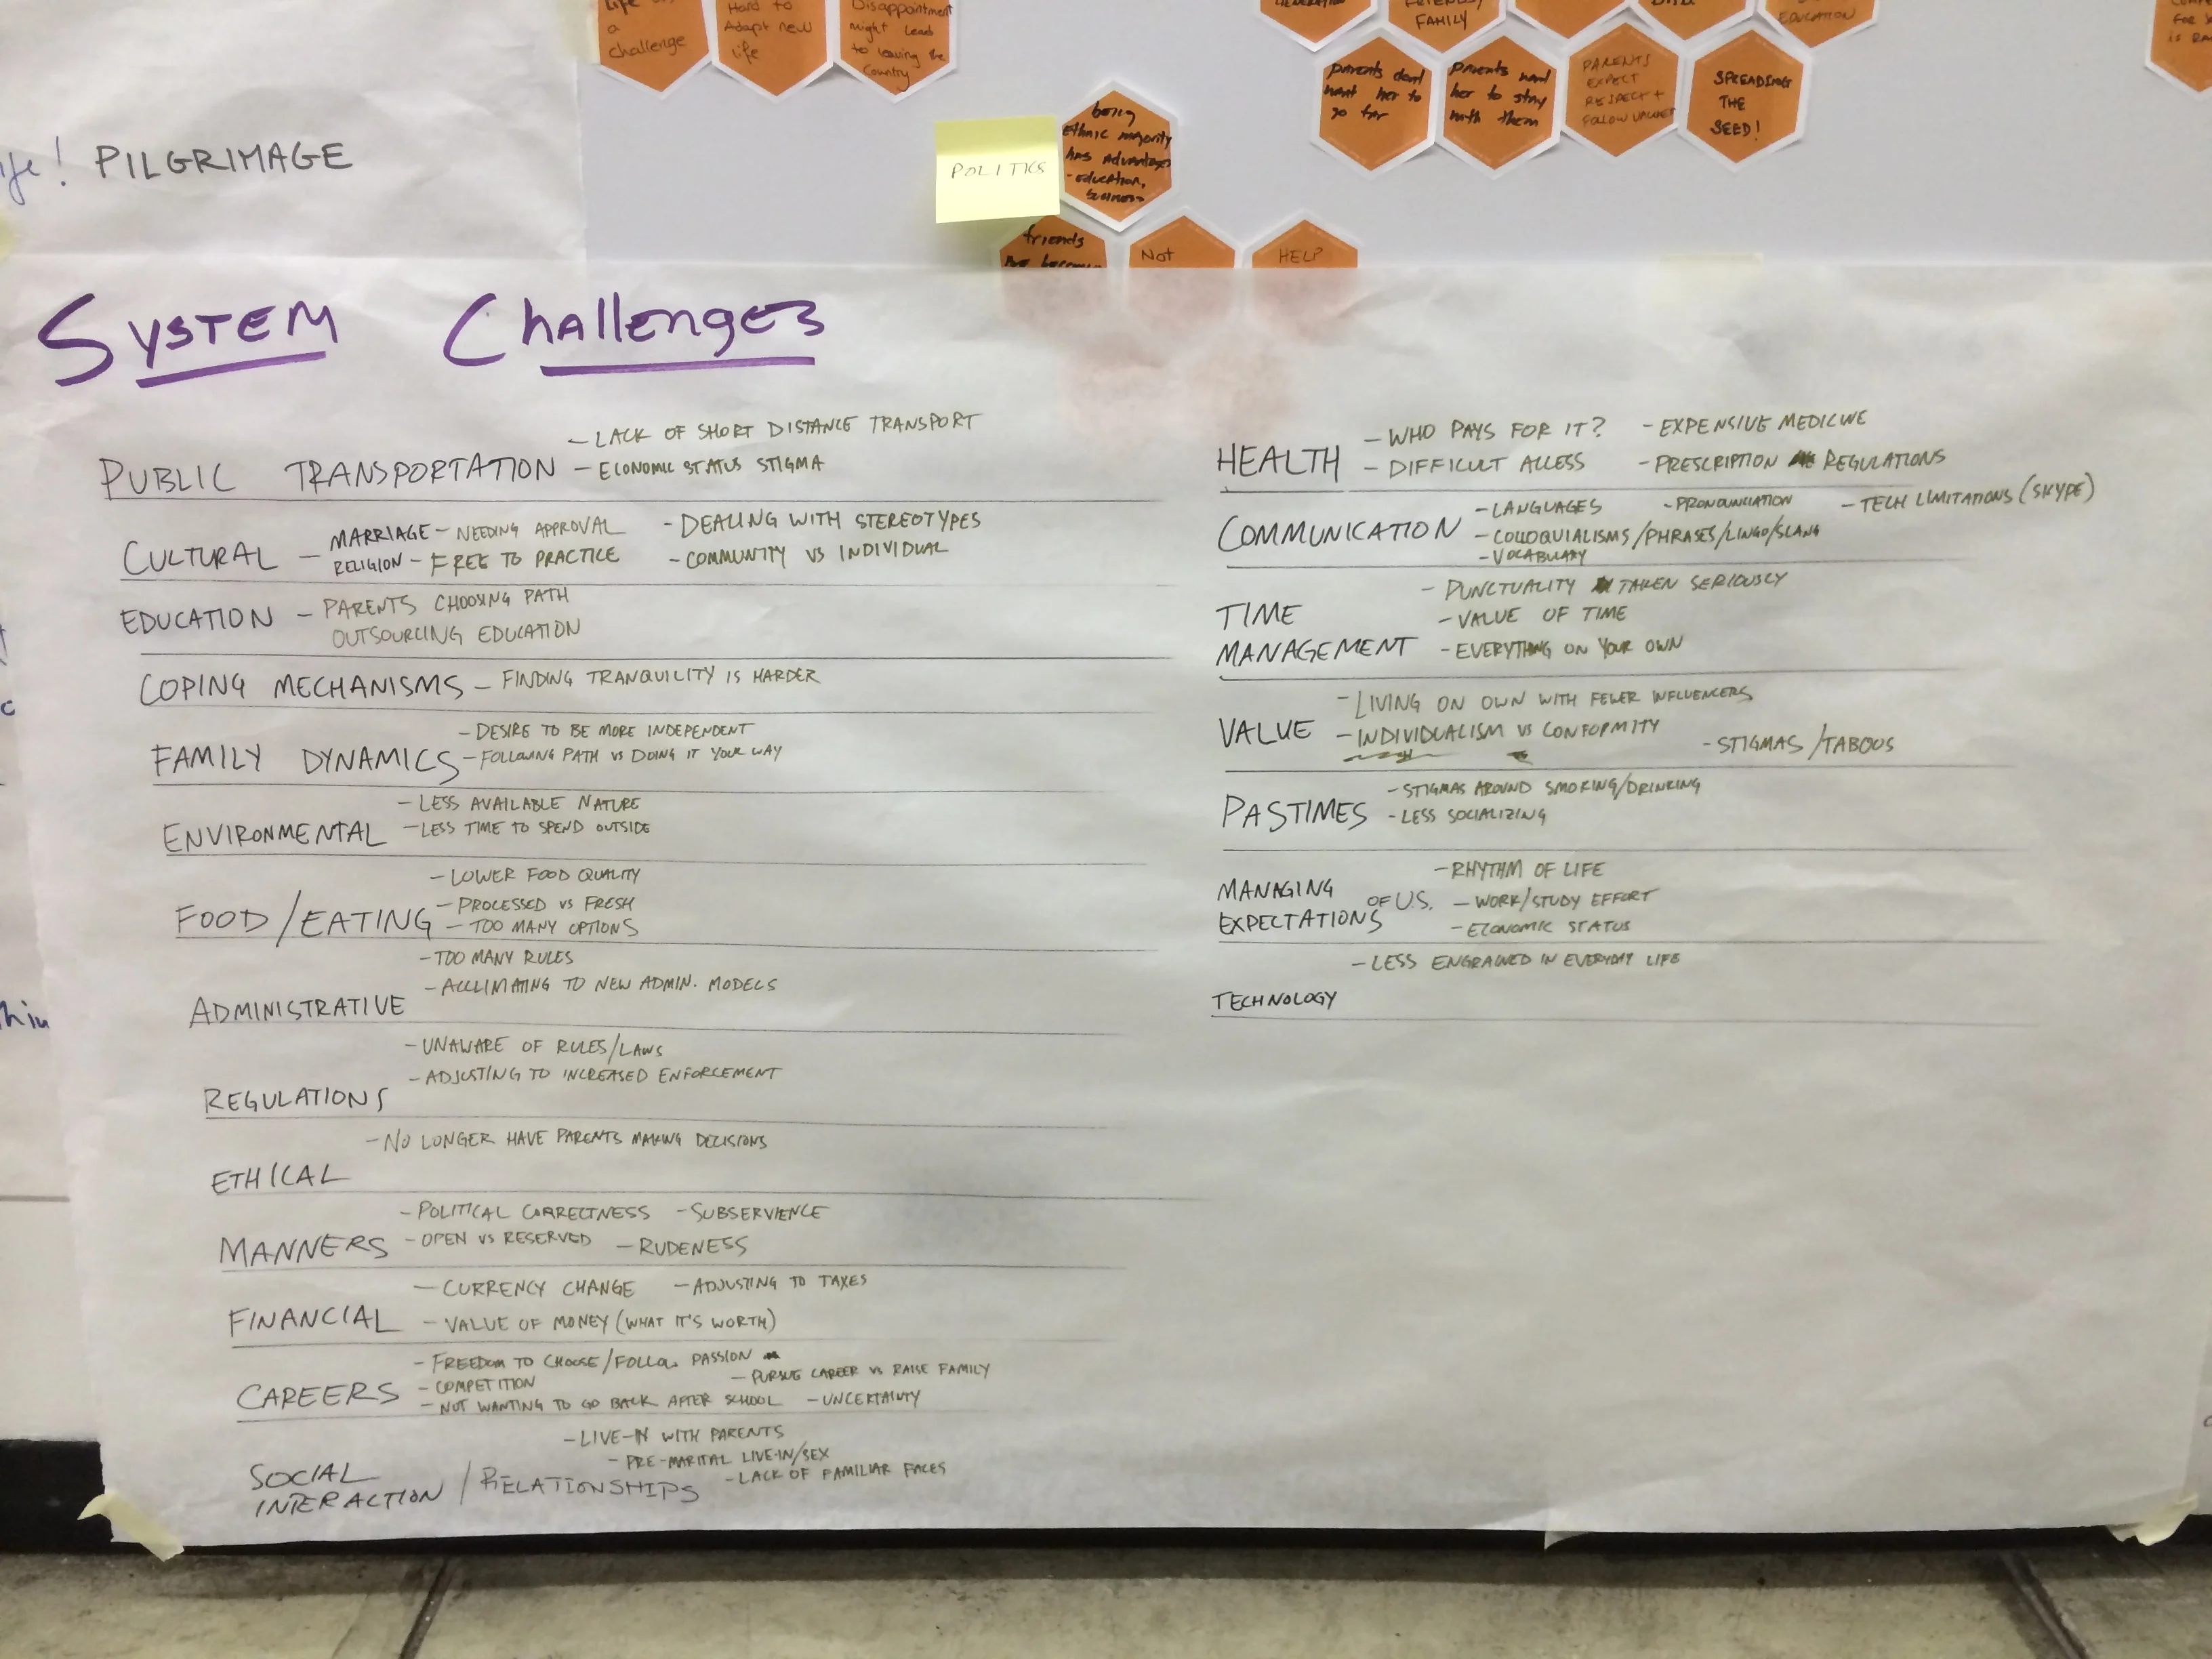 a
challenge
Hard to
Adapt new
life
Disappointment
might lead
to leaving the
Country
FAMILY
EDUCATION
parents dont
want her to
go far
parents want
her to stay
with them
PARENTS
EXPECT
RESPECT +
FOLLOW
SPREADING
THE
SEED!
being
Ethnic majority
has advantages
- education,
POLITICS
friends
Not
HELP
PILGRIMAGE
SYSTEM Challenges
PUBLIC TRANSPORTATION
- LACK OF SHORT DISTANCE TRANSPORT
- ECONOMIC STATUS STIGMA
CULTURAL
- MARRIAGE - NEEDING APPROVAL
RELIGION - FREE TO PRACTICE
- DEALING WITH STEREOTYPES
- COMMUNITY VS INDIVIDUAL
EDUCATION
- PARENTS CHOOSING PATH
OUTSOURCING EDUCATION
COPING MECHANISMS - FINDING TRANQUILITY IS HARDER
FAMILY DYNAMICS
- DESIRE TO BE MORE INDEPENDENT
- FOLLOWING PATH VS DOING IT YOUR WAY
ENVIRONMENTAL
- LESS AVAILABLE NATURE
- LESS TIME TO SPEND OUTSIDE
FOOD/EATING
- LOWER FOOD QUALITY
- PROCESSED VS FRESH
- TOO MANY OPTIONS
ADMINISTRATIVE
- TOO MANY RULES
- ACCLIMATING TO NEW ADMIN. MODELS
REGULATIONS
- UNAWARE OF RULES/LAWS
- ADJUSTING TO INCREASED ENFORCEMENT
ETHICAL
- NO LONGER HAVE PARENTS MAKING DECISIONS
MANNERS
- POLITICAL CORRECTNESS - SUBSERVIENCE
- OPEN VS RESERVED - RUDENESS
FINANCIAL
- CURRENCY CHANGE - ADJUSTING TO TAXES
- VALUE OF MONEY (WHAT IT'S WORTH)
CAREERS
- FREEDOM TO CHOOSE/FOLLOW PASSION
- COMPETITION - PURSUE CAREER VS RAISE FAMILY
- NOT WANTING TO GO BACK AFTER SCHOOL - UNCERTAINTY
SOCIAL
INTERACTION / RELATIONSHIPS
- LIVE-IN WITH PARENTS
- PRE-MARITAL LIVE-IN/SEX
- LACK OF FAMILIAR FACES
HEALTH
- WHO PAYS FOR IT? - EXPENSIVE MEDICINE
- DIFFICULT ACCESS - PRESCRIPTION REGULATIONS
COMMUNICATION
- LANGUAGES - PRONOUNCIATION - TECH LIMITATIONS (SKYPE)
- COLLOQUIALISMS/PHRASES/LINGO/SLANG
- VOCABULARY
TIME
MANAGEMENT
- PUNCTUALITY TAKEN SERIOUSLY
- VALUE OF TIME
- EVERYTHING ON YOUR OWN
VALUE
- LIVING ON OWN WITH FEWER INFLUENCERS
- INDIVIDUALISM VS CONFORMITY
- STIGMAS/TABOOS
PASTIMES
- STIGMAS AROUND SMOKING/DRINKING
- LESS SOCIALIZING
MANAGING
EXPECTATIONS OF U.S.
- RHYTHM OF LIFE
- WORK/STUDY EFFORT
- ECONOMIC STATUS
TECHNOLOGY
- LESS ENGRAINED IN EVERYDAY LIFE